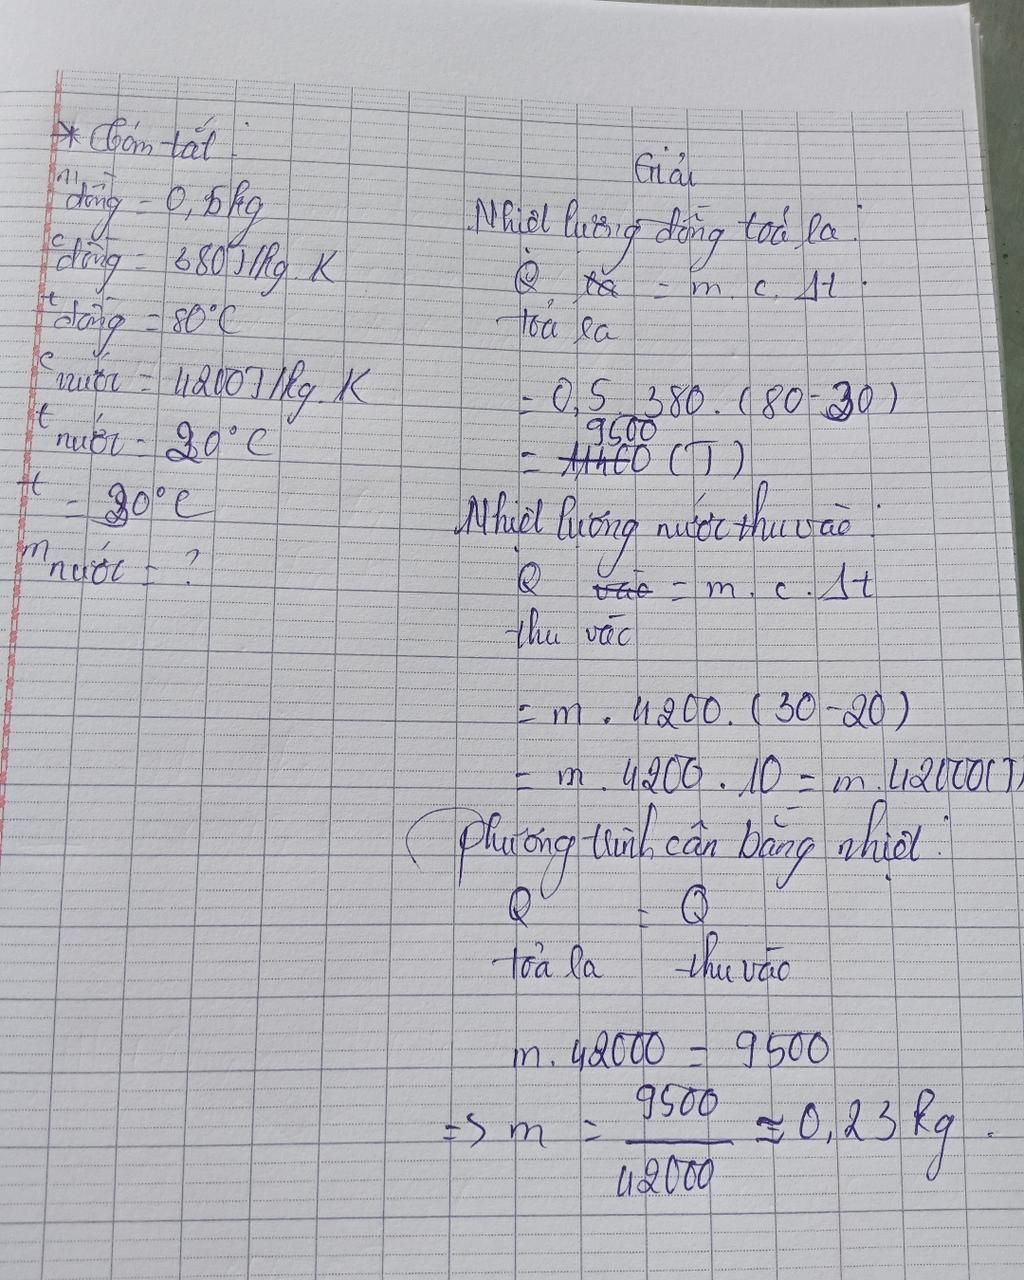 * Tóm tắt:
m đồng = 0,5kg
c đồng = 380J/kg.K
t đồng = 80°C
c nước = 4200J/kg.K
t nước = 20°C
t = 30°C
m nước = ?
Giải
Nhiệt lượng đồng toả ra:
Q = m c. Δt
toả ra
= 0,5. 380. (80-30)
9500
= (J)
Nhiệt lượng nước thu vào:
Q = m. c. Δt
thu vào
= m. 4200. (30-20)
= m. 4200. 10 = m. 42000(J)
Phương trình cân bằng nhiệt:
Q = Q
toả ra thu vào
m. 42000 = 9500
=> m = 9500 / 42000 ≈ 0,23 kg.